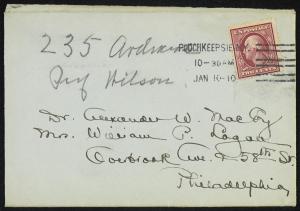 235
Wilson
POUGHKEEPSIE, N.Y.
10-30 AM
JAN
U.S. POSTAGE
TWO CENTS
Dr. Alexander W. MacCoy
Mrs. William P. Logan
Overbrook Ave. & 58th St.
Philadelphia